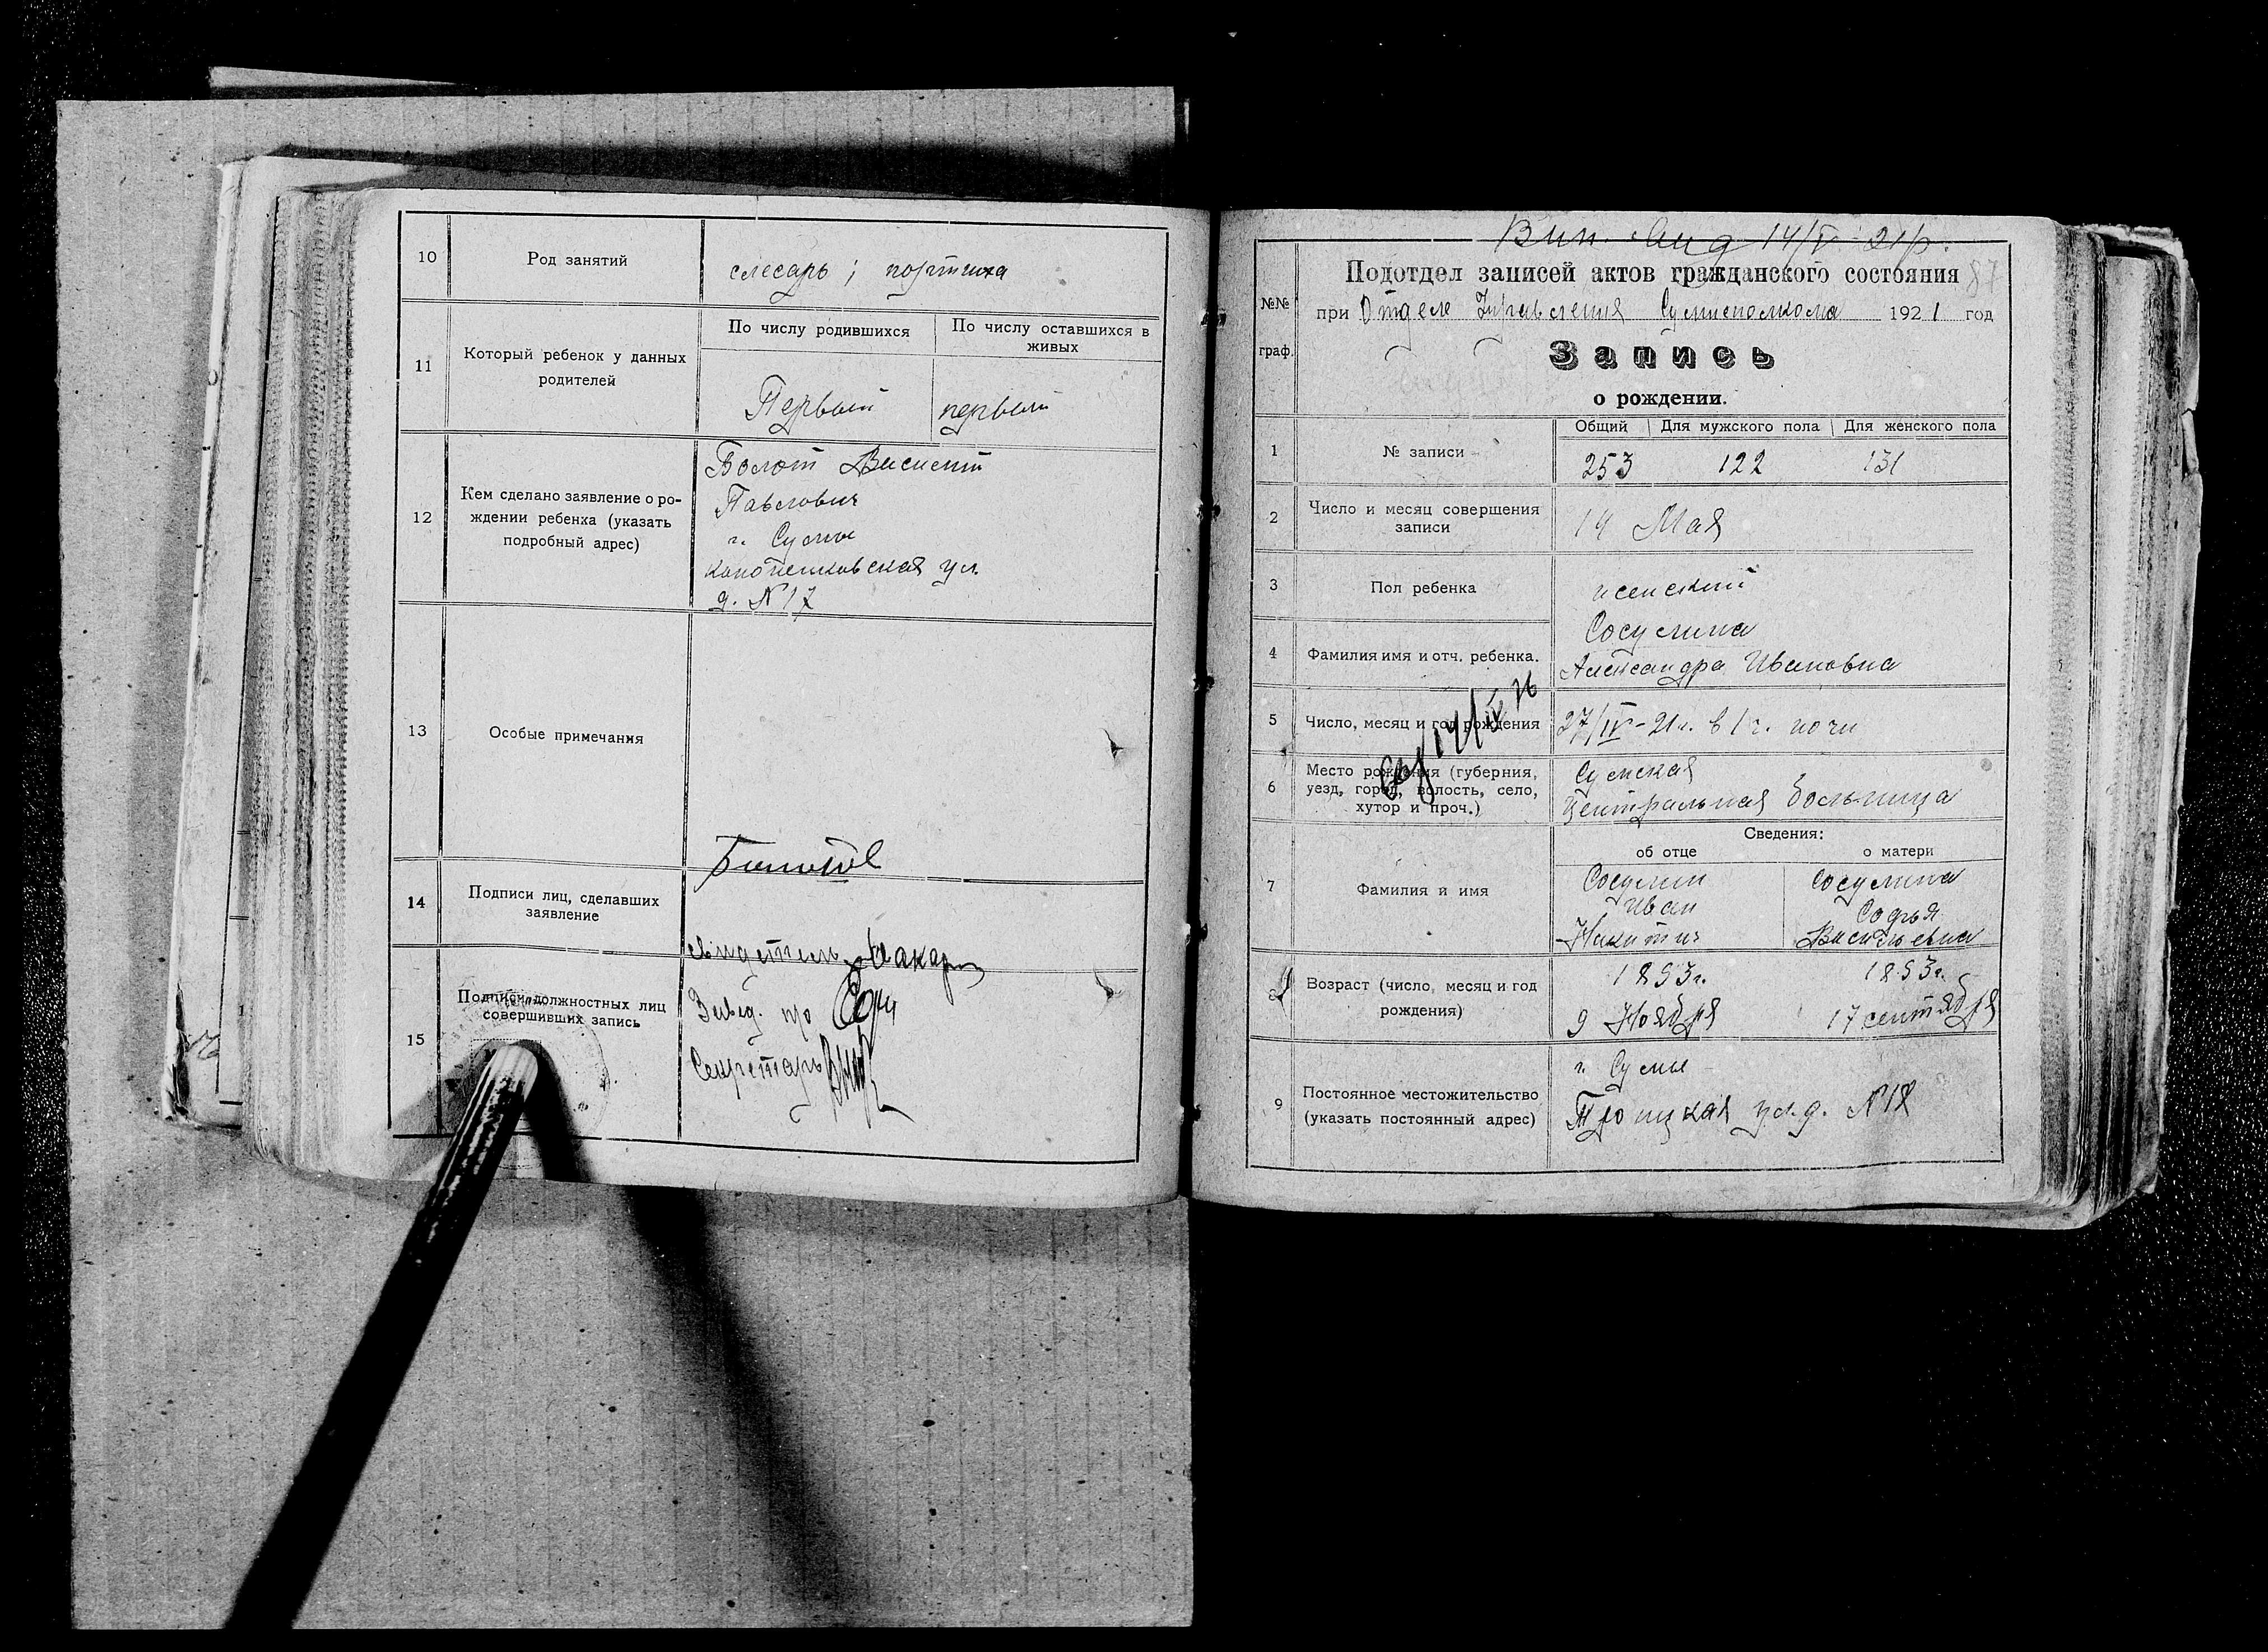 10
Род занятий
слесарь; портниха
11
Который ребенок у данных
родителей
По числу родившихся
По числу оставшихся в
живых
Первый
первый
12
Кем сделано заявление о ро-
ждении ребенка (указать
подробный адрес)
Болот Василий
Павлович
г. Сумы
ул.
д. N 17
13
Особые примечания
14
Подписи лиц, сделавших
заявление
15
Подписи должностных лиц
совершивших запись
Завед. про
Секретарь
14/V 21р.
№№
граф.
Подотдел записей актов гражданского состояния
87
при Отделе Управления Сумисполкома 1921 год
Запись
о рождении.
1
№ записи
Общий
Для мужского пола
Для женского пола
253
122
131
2
Число и месяц совершения
записи
14 Мая
3
Пол ребенка
женский
4
Фамилия имя и отч. ребенка.
Сосулина
Александра Ивановна
5
Число, месяц и год рождения
27/IV-21г. в 1 ч. ночи
6
Место рождения (губерния,
уезд, город, волость, село,
хутор и проч.)
Сумская
Центральная больница
Сведения:
об отце
о матери
7
Фамилия и имя
Сосулин
Иван
Никитич
Сосулина
Софья
Васильевна
Возраст (число, месяц и год
рождения)
1893г.
9 Ноября
1893г.
17 сентября
9
Постоянное местожительство
(указать постоянный адрес)
г. Сумы
Троицкая ул. д. N 18